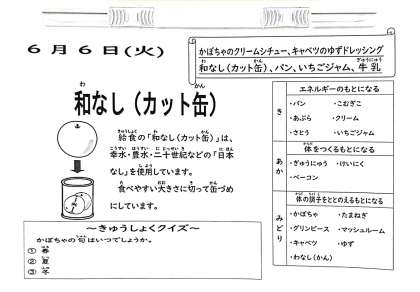 6月6日(火)
かぼちゃのクリームシチュー、キャベツのゆずドレッシング
和なし(カット缶)、パン、いちごジャム、牛乳
和なし(カット缶)
給食の「和なし(カット缶)」は、
幸水・豊水・二十世紀などの「日本
なし」を使用しています。
食べやすい大きさに切って缶づめ
にしています。
～きゅうしょくクイズ～
かぼちゃの旬はいつでしょうか。
① 春
② 夏
③ 冬
エネルギーのもとになる
き
・パン ・こむぎこ
・あぶら ・クリーム
・さとう ・いちごジャム
体をつくるもとになる
あか
・ぎゅうにゅう ・けいにく
・ベーコン
体の調子をととのえるもとになる
みどり
・かぼちゃ ・たまねぎ
・グリンピース ・マッシュルーム
・キャベツ ・ゆず
・わなし(かん)